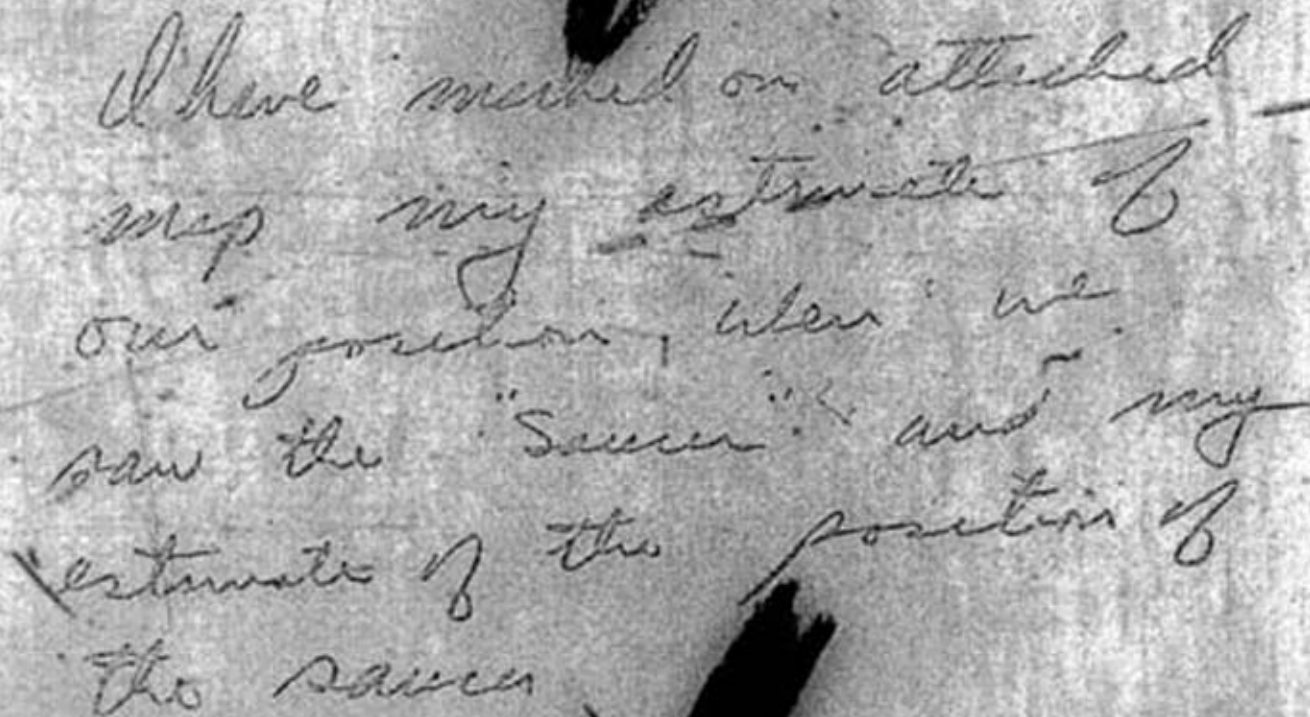 I have marked on attached
map my estimate of
our position, when we
saw the "Saucer" and my
estimate of the position of
the saucer